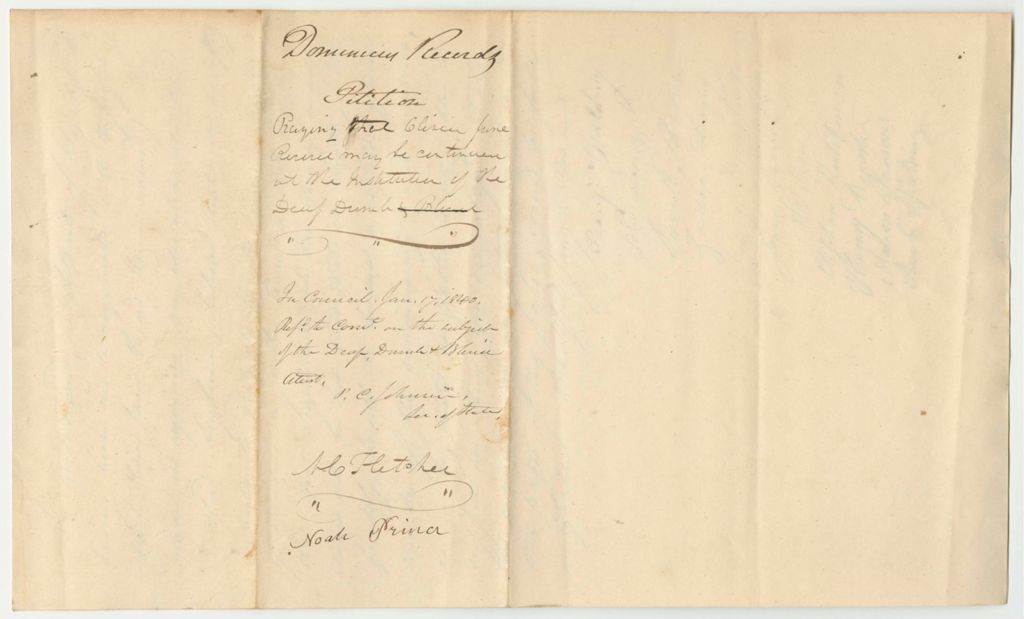 Dominicus Records
Petition
Praying that Clivia Jane
Record may be continued
at the Institution of the
Deaf Dumb & Blind
In Council. Jan. 17, 1840.
Ref.d to Com.e on the subject
of the Deaf, Dumb & Blind
Attest,
P. C. Johnson,
Sec. of State.
N C Fletcher
Noah Prince